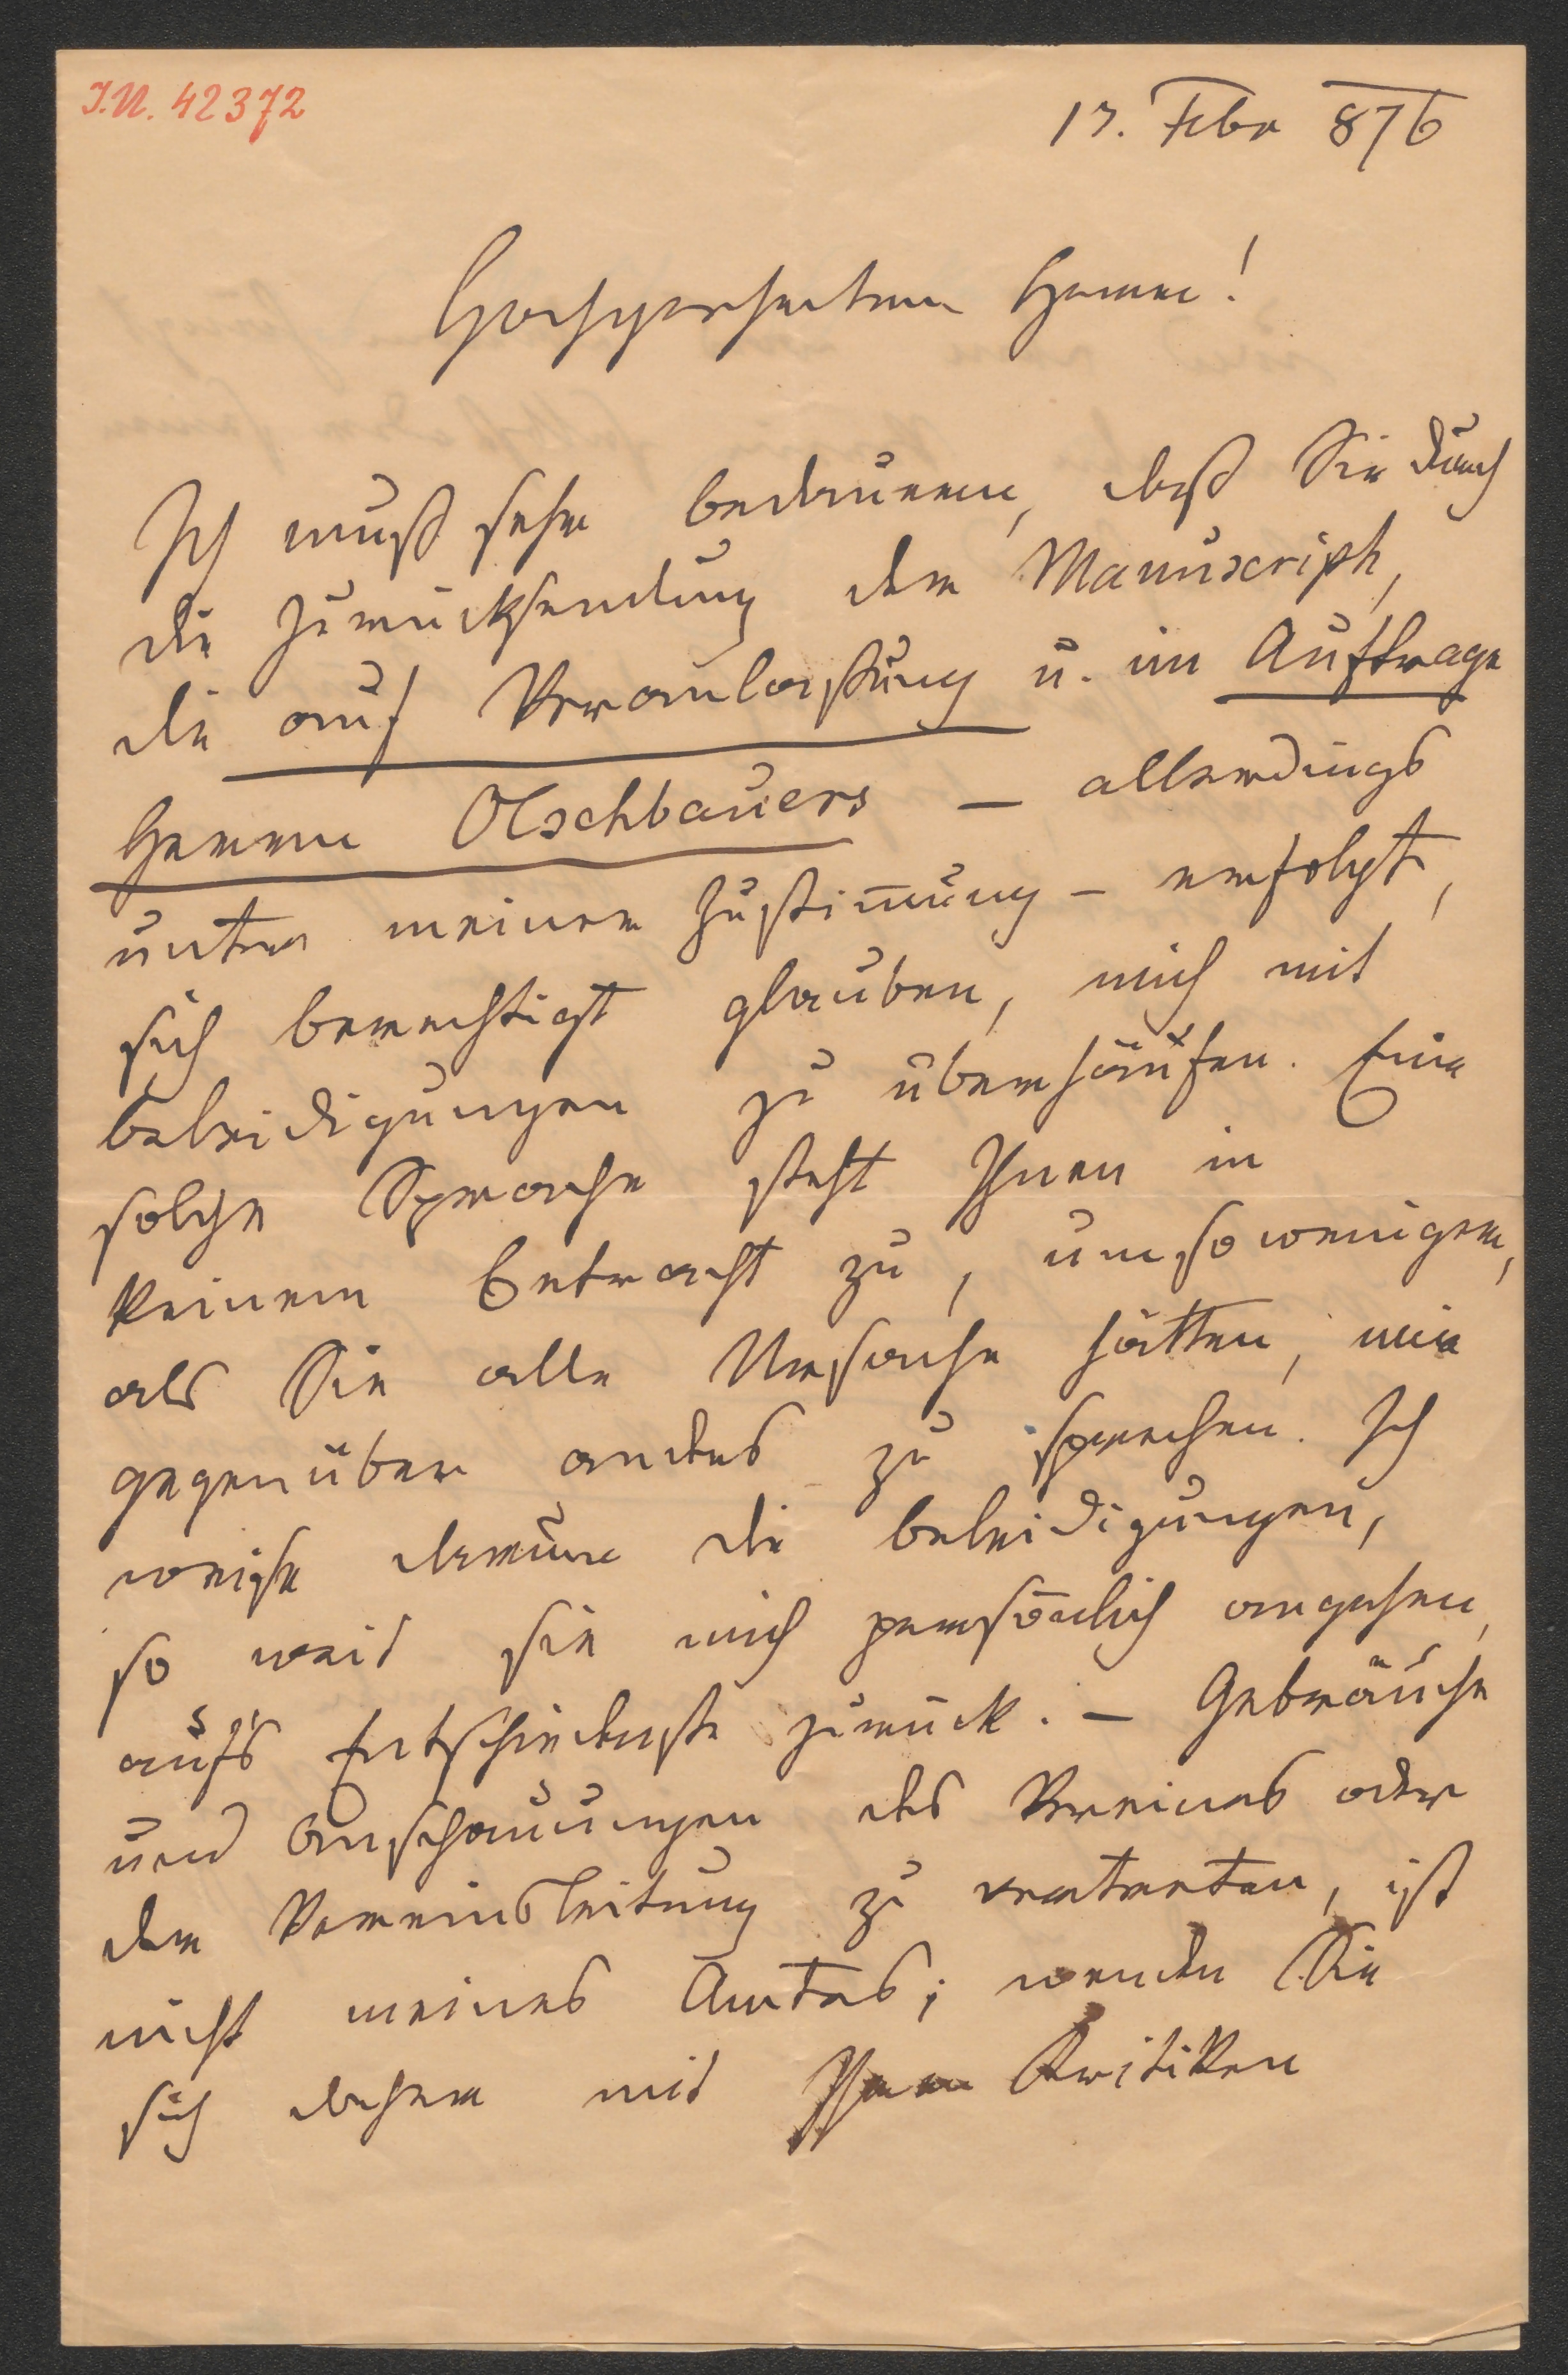 I.N. 42372
17. Febr 876
Hochgeehrter Herr!
Ich muß sehr bedauern, daß Sie durch
die Zurücksendung der Manuscripte,
die auf Veranlaßung u. im Auftrage
Herrn Olschbauers – allerdings
unter meiner Zustim̄ung – erfolgt,
sich berechtigt glauben, mich mit
Beleidigungen zu überhäufen. Eine
solche Sprache steht Ihnen in
keinem Betracht zu, umsoweniger,
als Sie alle Ursache hätten, mir
gegenüber anders zu sprechen. Ich
weise darum die Beleidigungen,
so weit sie mich persönlich angehen,
auf's Entschiedenste zurück. – Gebräuche
und Anschauungen des Vereines oder
der Vereinsleitung zu vertreten, ist
nicht meines Amtes; wenden Sie
sich daher mit Ihren Kritiken